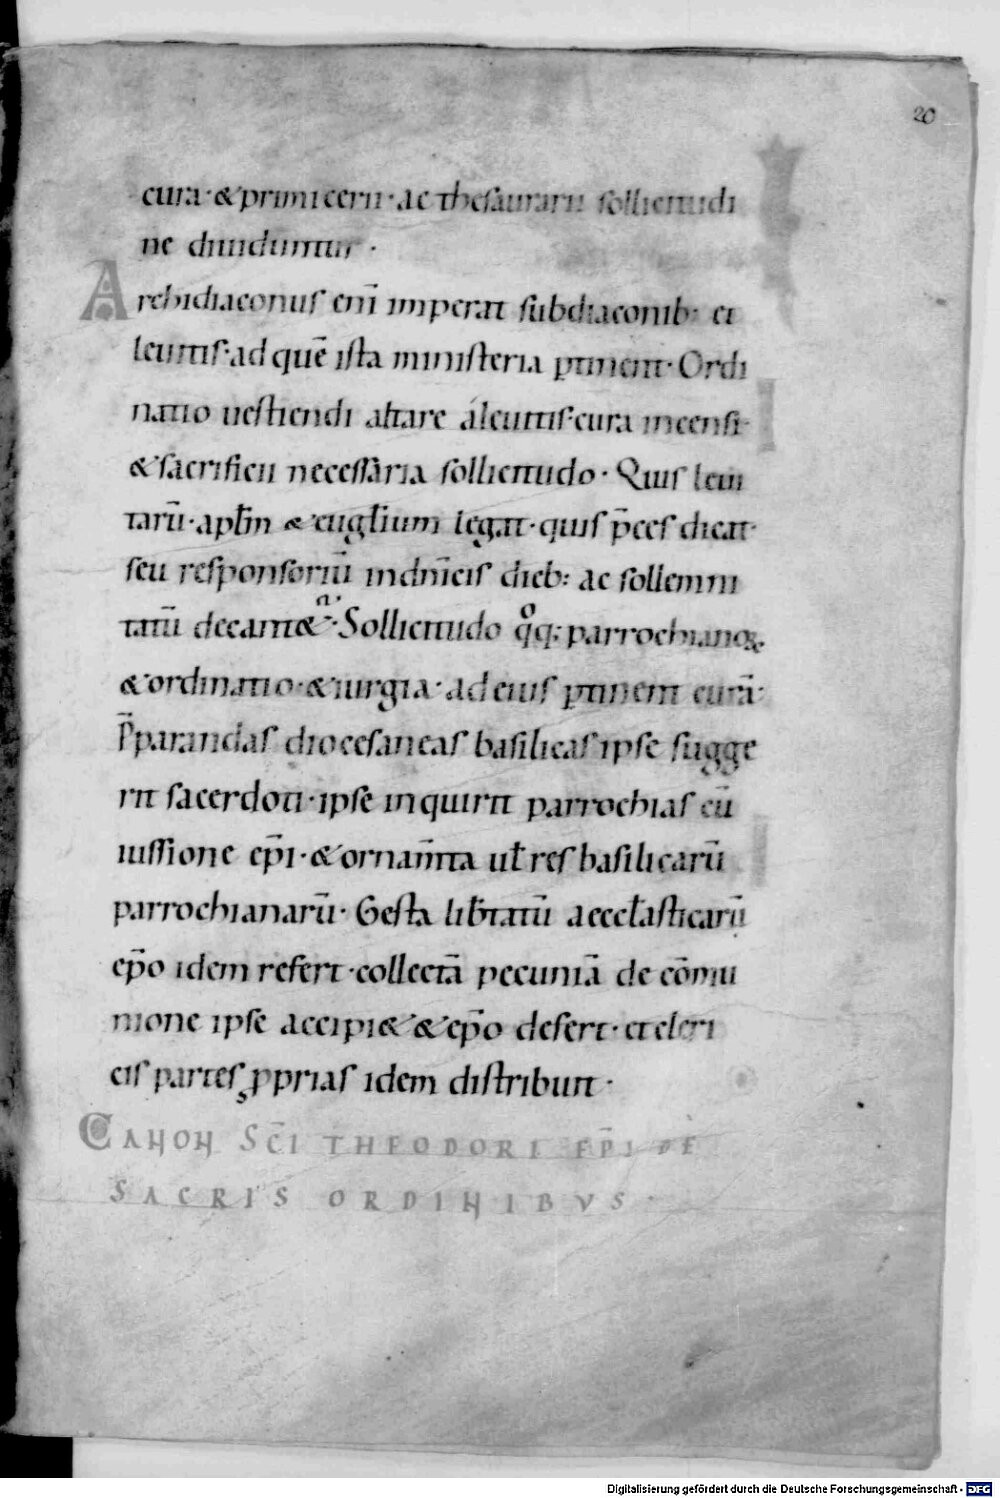 20
cura· & primicerii· ac thesaurarii sollicitudi
ne diuiduntur·
Archidiaconus eni̅ imperat subdiaconib: et
leuitis· ad que̅ ista ministeria ꝑtinent· Ordi
natio uestiendi altare a leuitis· cura incensi·
& sacrificii necessaria sollicitudo· Quis leui
taru̅· apłm & euglium legat· quis p̅ces dicat·
seu responsoriu̅ in dn̅icis dieb: ac sollemni
tatu̅ decant&· Sollicitudo qoq; parrochianoꝝ
& ordinatio· & iurgia· ad eius ꝑtinent cura̅·
P̅parandas diocesaneas basilicas ipse sugge
rit sacerdoti· ipse inquirit parrochias cu̅
iussione ep̅i· & ornam̅ta uł res basilicaru̅
parrochianaru̅· Gesta lib̅tatu̅ aeccłasticaru̅
ep̅o idem refert· collecta̅ pecunia̅ de co̅mu
nione ipse accipi& & ep̅o defert· et cleri
cis partes ꝓprias idem distribuit·
CANON SC̅I THEODORI EP̅I DE
SACRIS ORDINIBVS·
Digitalisierung gefördert durch die Deutsche Forschungsgemeinschaft - DFG